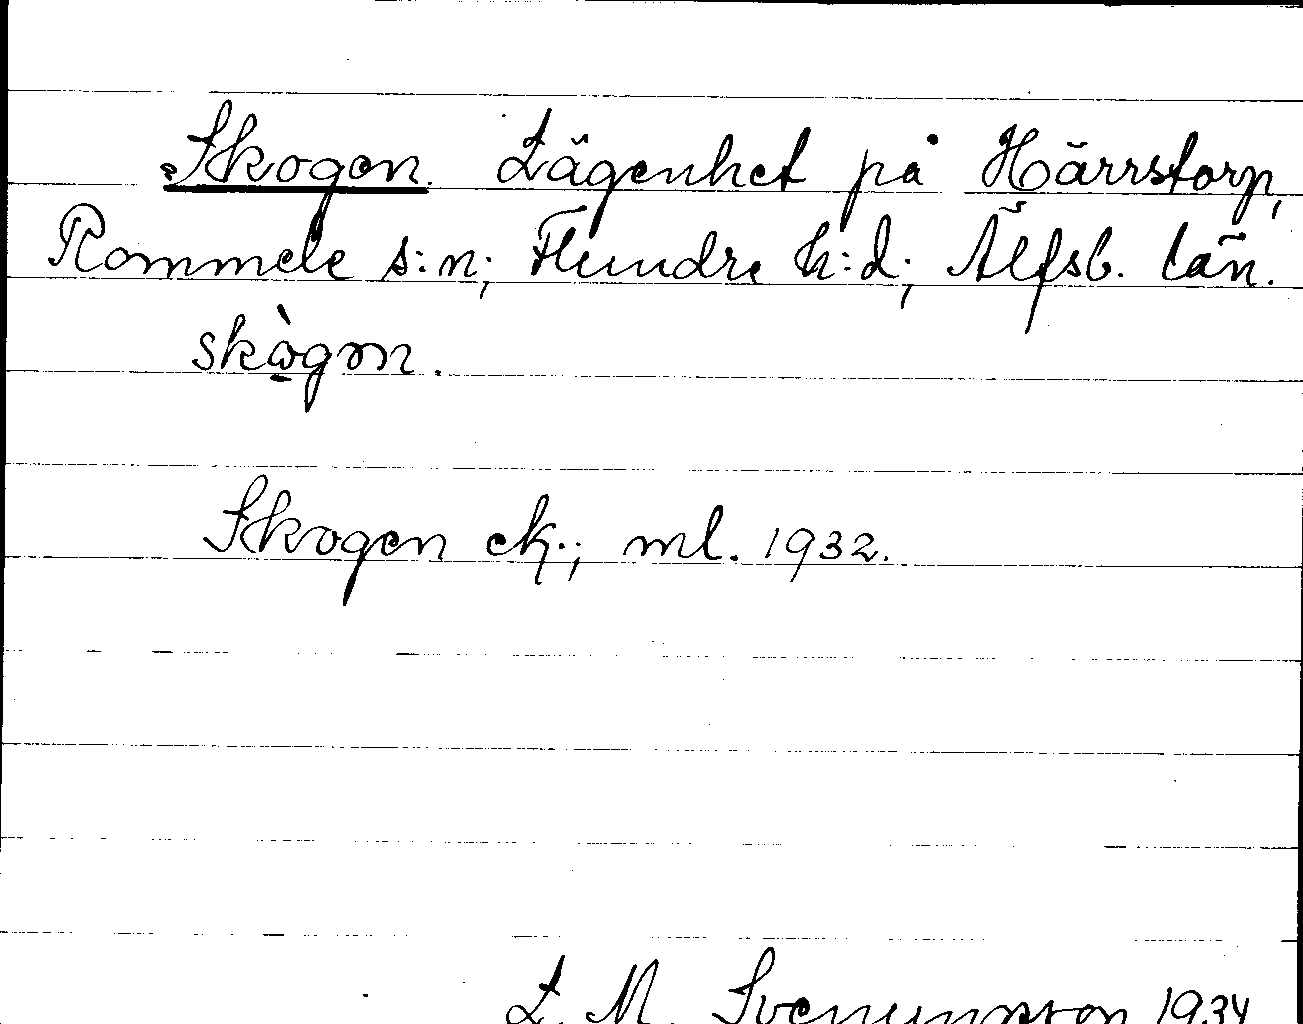 Skogen. Lägenhet på Härrstorp,
Rommele s:n; Flundre h:d; Älfsb. län.
skògɷn.
Skogen ek.; ml. 1932.
L. M. Svenungsson 1934